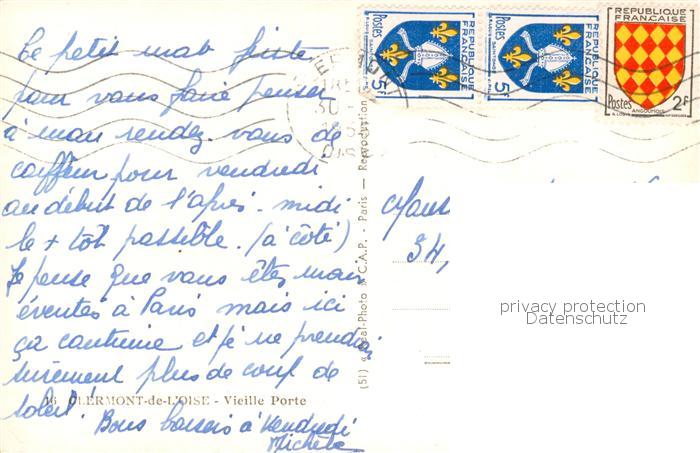 Ce petit mot juste
pour vous faire penser
à mon rendez-vous de
coiffeur pour vendredi
au début de l'après-midi
le + tôt possible. (à côté)
Je pense que vous êtes moins
éventés à Paris mais ici
ça continue et je ne prendrai
sûrement plus de coup de
soleil!
16 CLERMONT-de-L'OISE - Vieille Porte
Bons baisers à Vendredi
Michèle
(51) « Real-Photo » C.A.P. - Paris — Reproduction
Postes
REPUBLIQUE
FRANÇAISE
5F
Postes
REPUBLIQUE
FRANÇAISE
5F
REPUBLIQUE
FRANÇAISE
Postes
2F
ANGOUMOIS
34,
privacy protection
Datenschutz